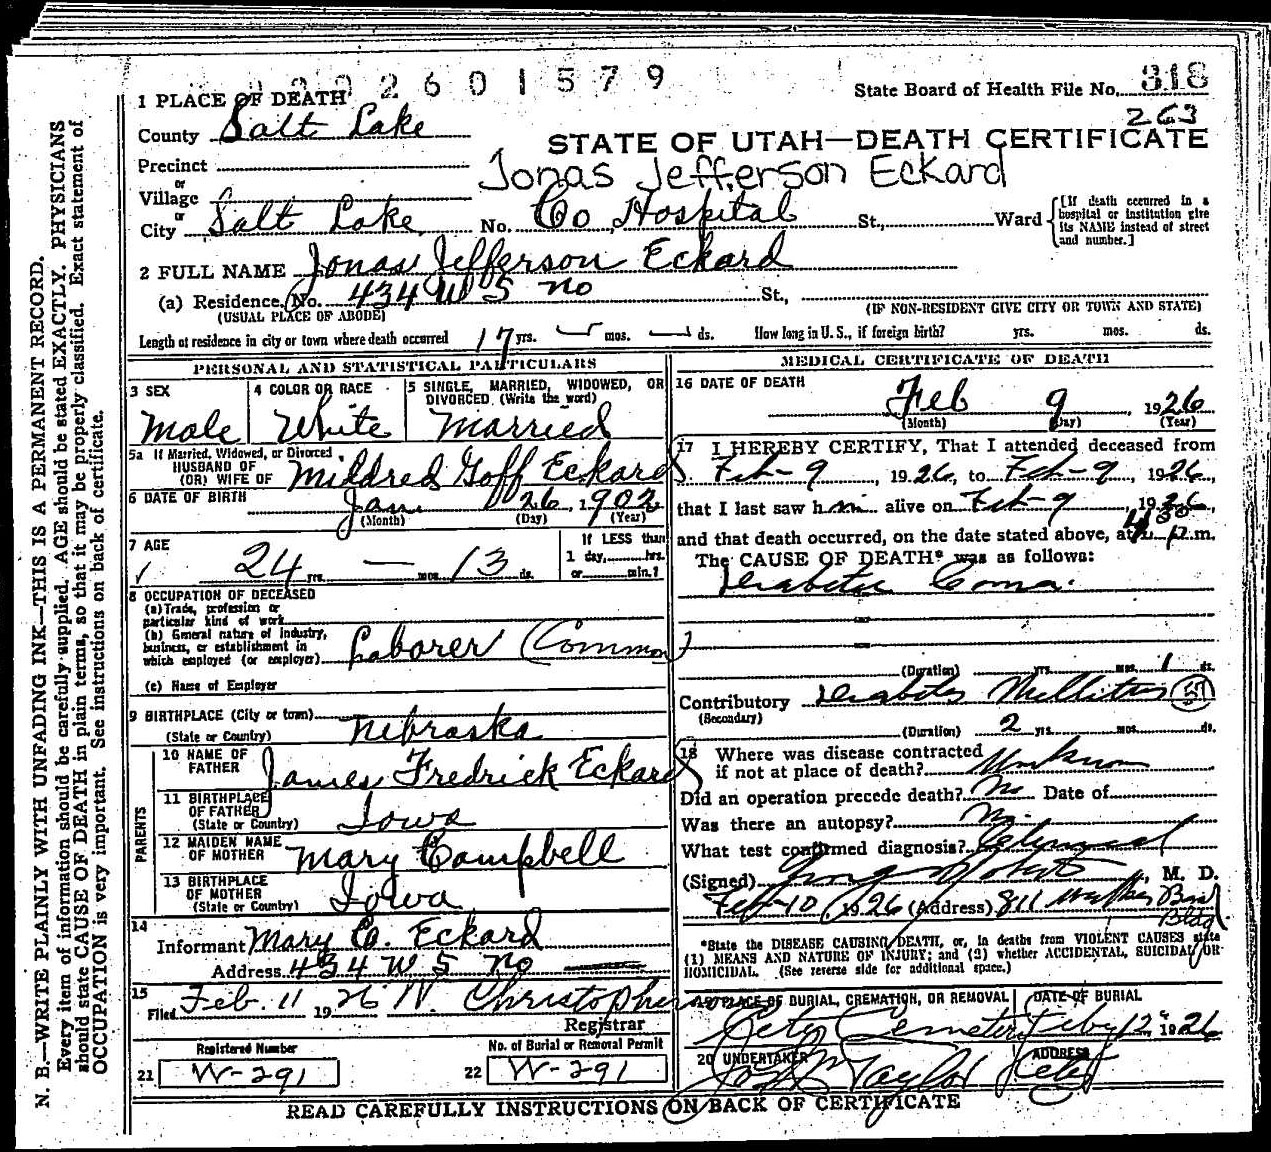 2601579
State Board of Health File No. 318
263
1 PLACE OF DEATH
County Salt Lake
STATE OF UTAH—DEATH CERTIFICATE
Precinct
Jonas Jefferson Eckard
or
Village
or
City Salt Lake No. Co Hospital St., Ward
[If death occurred in a
hospital or institution give
its NAME instead of street
and number.]
2 FULL NAME Jonas Jefferson Eckard
(a) Residence. No. 434 W 5 no St.,
(USUAL PLACE OF ABODE)
(IF NON-RESIDENT GIVE CITY OR TOWN AND STATE)
Length of residence in city or town where death occurred 17 yrs. — mos. — ds. How long in U. S., if foreign birth? yrs. mos. ds.
PERSONAL AND STATISTICAL PARTICULARS
3 SEX
Male
4 COLOR OR RACE
White
5 SINGLE, MARRIED, WIDOWED, OR
DIVORCED. (Write the word)
Married
5a If Married, Widowed, or Divorced
HUSBAND OF
(OR) WIFE OF Mildred Goff Eckard
6 DATE OF BIRTH Jan 26, 1902
(Month) (Day) (Year)
7 AGE
24 yrs. — mos. 13 ds.
If LESS than
1 day, hrs.
or min.?
8 OCCUPATION OF DECEASED
(a) Trade, profession or
particular kind of work
(b) General nature of industry,
business, or establishment in
which employed (or employer) Laborer (Common)
(c) Name of Employer
9 BIRTHPLACE (City or town)
(State or Country) Nebraska
PARENTS
10 NAME OF
FATHER James Fredrick Eckard
11 BIRTHPLACE
OF FATHER
(State or Country) Iowa
12 MAIDEN NAME
OF MOTHER Mary Campbell
13 BIRTHPLACE
OF MOTHER
(State or Country) Iowa
14
Informant Mary C. Eckard
Address 434 W 5 no
15
Filed Feb. 11 1926 W. Christopherson
Registrar
Registered Number
21 W-291
No. of Burial or Removal Permit
22 W-291
MEDICAL CERTIFICATE OF DEATH
16 DATE OF DEATH
Feb 9, 1926
(Month) (Day) (Year)
17 I HEREBY CERTIFY, That I attended deceased from
Feb-9, 1926, to Feb-9, 1926,
that I last saw him alive on Feb-9, 1926,
and that death occurred, on the date stated above, at 4 30 p.m.
The CAUSE OF DEATH* was as follows:
Diabetic Coma.
(Duration) yrs. mos. 1 ds.
Contributory Diabetes Mellitus 57
(Secondary)
(Duration) 2 yrs. mos. ds.
18 Where was disease contracted
if not at place of death? Unknown
Did an operation precede death? No Date of
Was there an autopsy? No.
What test confirmed diagnosis? Clinical
(Signed) M. D.
Feb-10 1926 (Address) 811 Walker Bank
Bldg
*State the DISEASE CAUSING DEATH, or, in deaths from VIOLENT CAUSES state
(1) MEANS AND NATURE OF INJURY; and (2) whether ACCIDENTAL, SUICIDAL OR
HOMICIDAL. (See reverse side for additional space.)
19 PLACE OF BURIAL, CREMATION, OR REMOVAL
City Cemetery
DATE OF BURIAL
Feby 12" 1926
20 UNDERTAKER
Jos Taylor
ADDRESS
City
READ CAREFULLY INSTRUCTIONS ON BACK OF CERTIFICATE
N. B.—WRITE PLAINLY WITH UNFADING INK—THIS IS A PERMANENT RECORD.
Every item of information should be carefully supplied. AGE should be stated EXACTLY. PHYSICIANS
should state CAUSE OF DEATH in plain terms, so that it may be properly classified. Exact statement of
OCCUPATION is very important. See instructions on back of certificate.